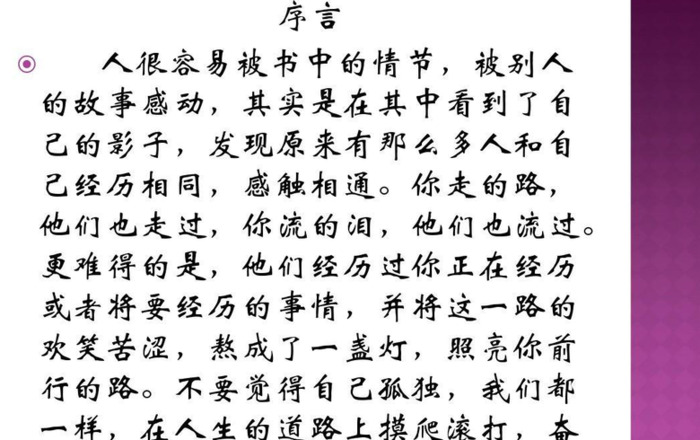 序言
人很容易被书中的情节，被别人
的故事感动，其实是在其中看到了自
己的影子，发现原来有那么多人和自
己经历相同，感触相通。你走的路，
他们也走过，你流的泪，他们也流过。
更难得的是，他们经历过你正在经历
或者将要经历的事情，并将这一路的
欢笑苦涩，熬成了一盏灯，照亮你前
行的路。不要觉得自己孤独，我们都
一样，在人生的道路上摸爬滚打，奋